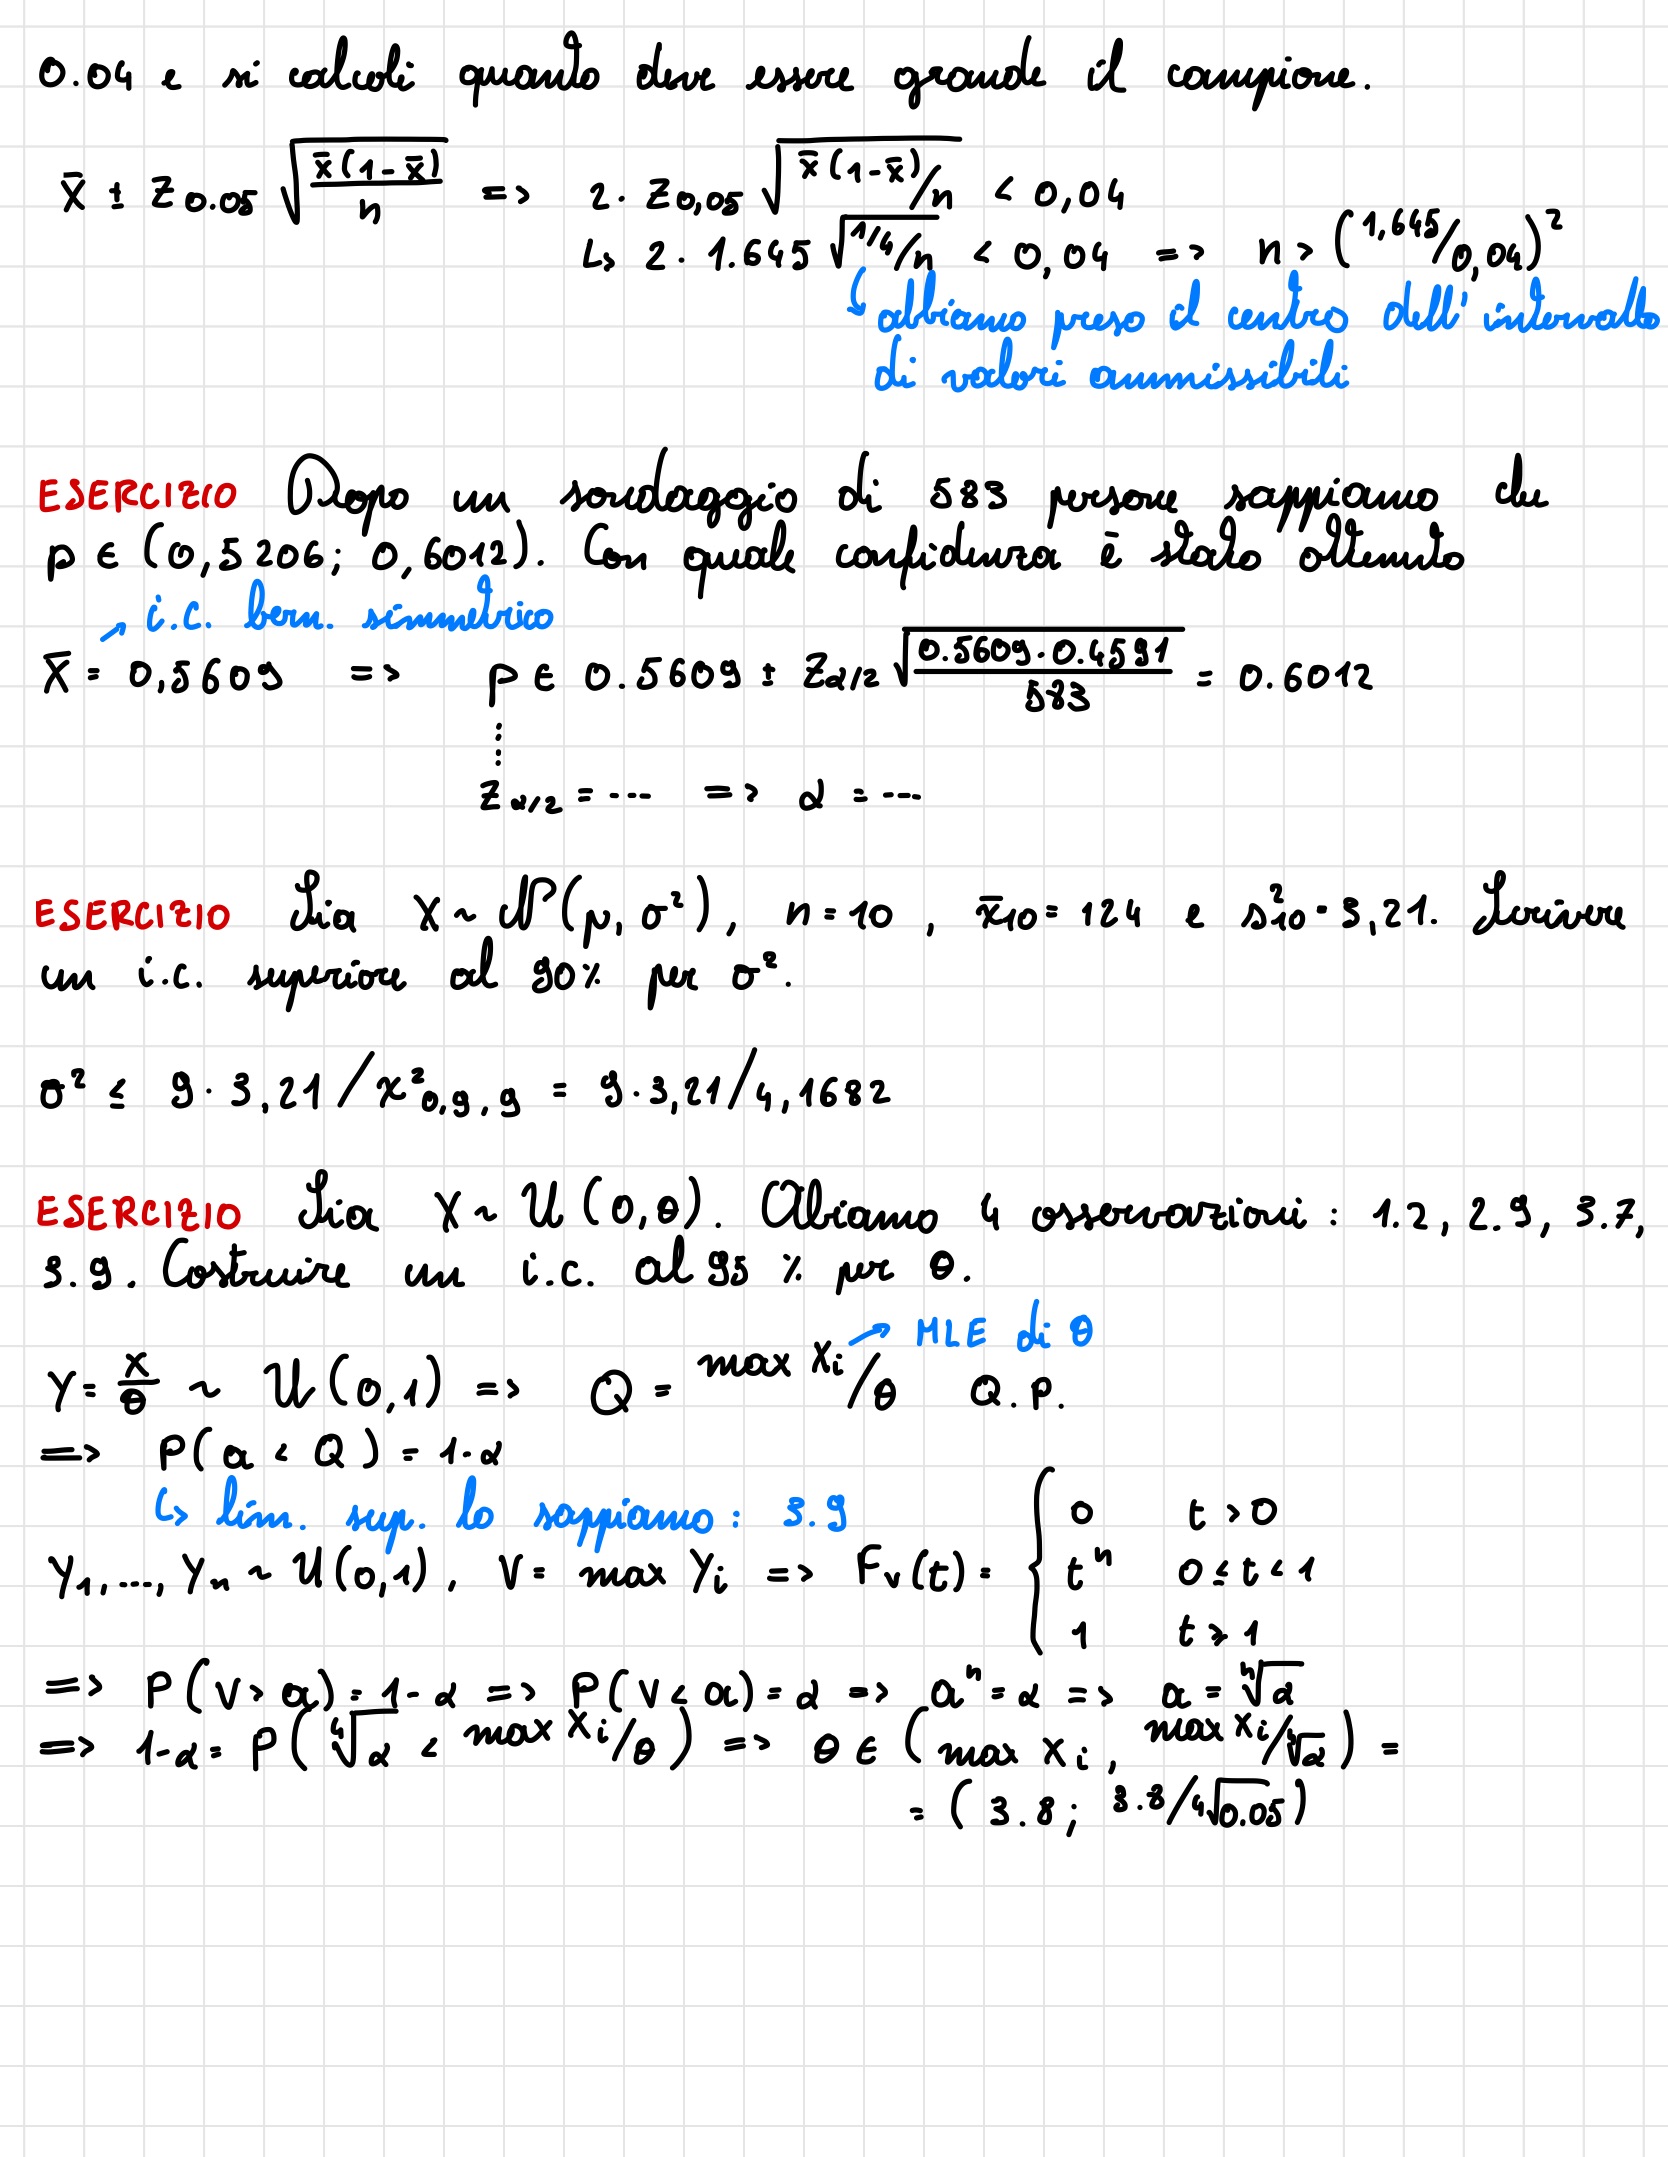 0.04 e si calcoli quanto deve essere grande il campione.
X̄ ± Z0.05 √(x̄(1-x̄)/n) => 2· Z0,05 √(x̄(1-x̄)/n) < 0,04
↳ 2· 1.645 √(1/4/n) < 0,04 => n > (1,645/0,04)²
↳ abbiamo preso il centro dell'intervallo
di valori ammissibili
ESERCIZIO Dopo un sondaggio di 583 persone sappiamo che
p ∈ (0,5206; 0,6012). Con quale confidenza è stato ottenuto
↗ i.c. bern. simmetrico
X̄ = 0,5609 => p ∈ 0.5609 ± Zα/2 √(0.5609·0.4591/583) = 0.6012
⋮
Zα/2 = --- => α = ---
ESERCIZIO Sia X ~ N(μ, σ²), n = 10, x̄10 = 124 e s²10 = 3,21. Scrivere
un i.c. superiore al 90% per σ².
σ² ≤ 9·3,21/χ²0,9,9 = 9·3,21/4,1682
ESERCIZIO Sia X ~ U(0,θ). Abiamo 4 osservazioni: 1.2, 2.9, 3.7,
3.9. Costruire un i.c. al 95% per θ.
→ MLE di θ
Y = X/θ ~ U(0,1) => Q = max Xi/θ Q.P.
=> P(a < Q) = 1-α
↳ lim. sup. lo sappiamo: 3.9
Y1,..., Yn ~ U(0,1), V = max Yi => Fv(t) = { 0 t > 0
tⁿ 0 ≤ t < 1
1 t ≥ 1
=> P(V > a) = 1-α => P(V < a) = α => aⁿ = α => a = ⁿ√α
=> 1-α = P(⁴√α < max Xi/θ) => θ ∈ (max Xi, max Xi/⁴√α) =
= (3.8; 3.8/⁴√0.05)